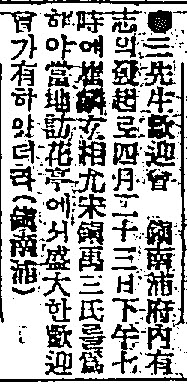 ●三先生歡迎會 鎭南浦府內有
志의發起로四月二十三日下午七
時에崔麟玄相允宋鎭禹三氏를爲
하야當地訪花亭에서盛大한歡迎
會가有하얏더라(鎭南浦)